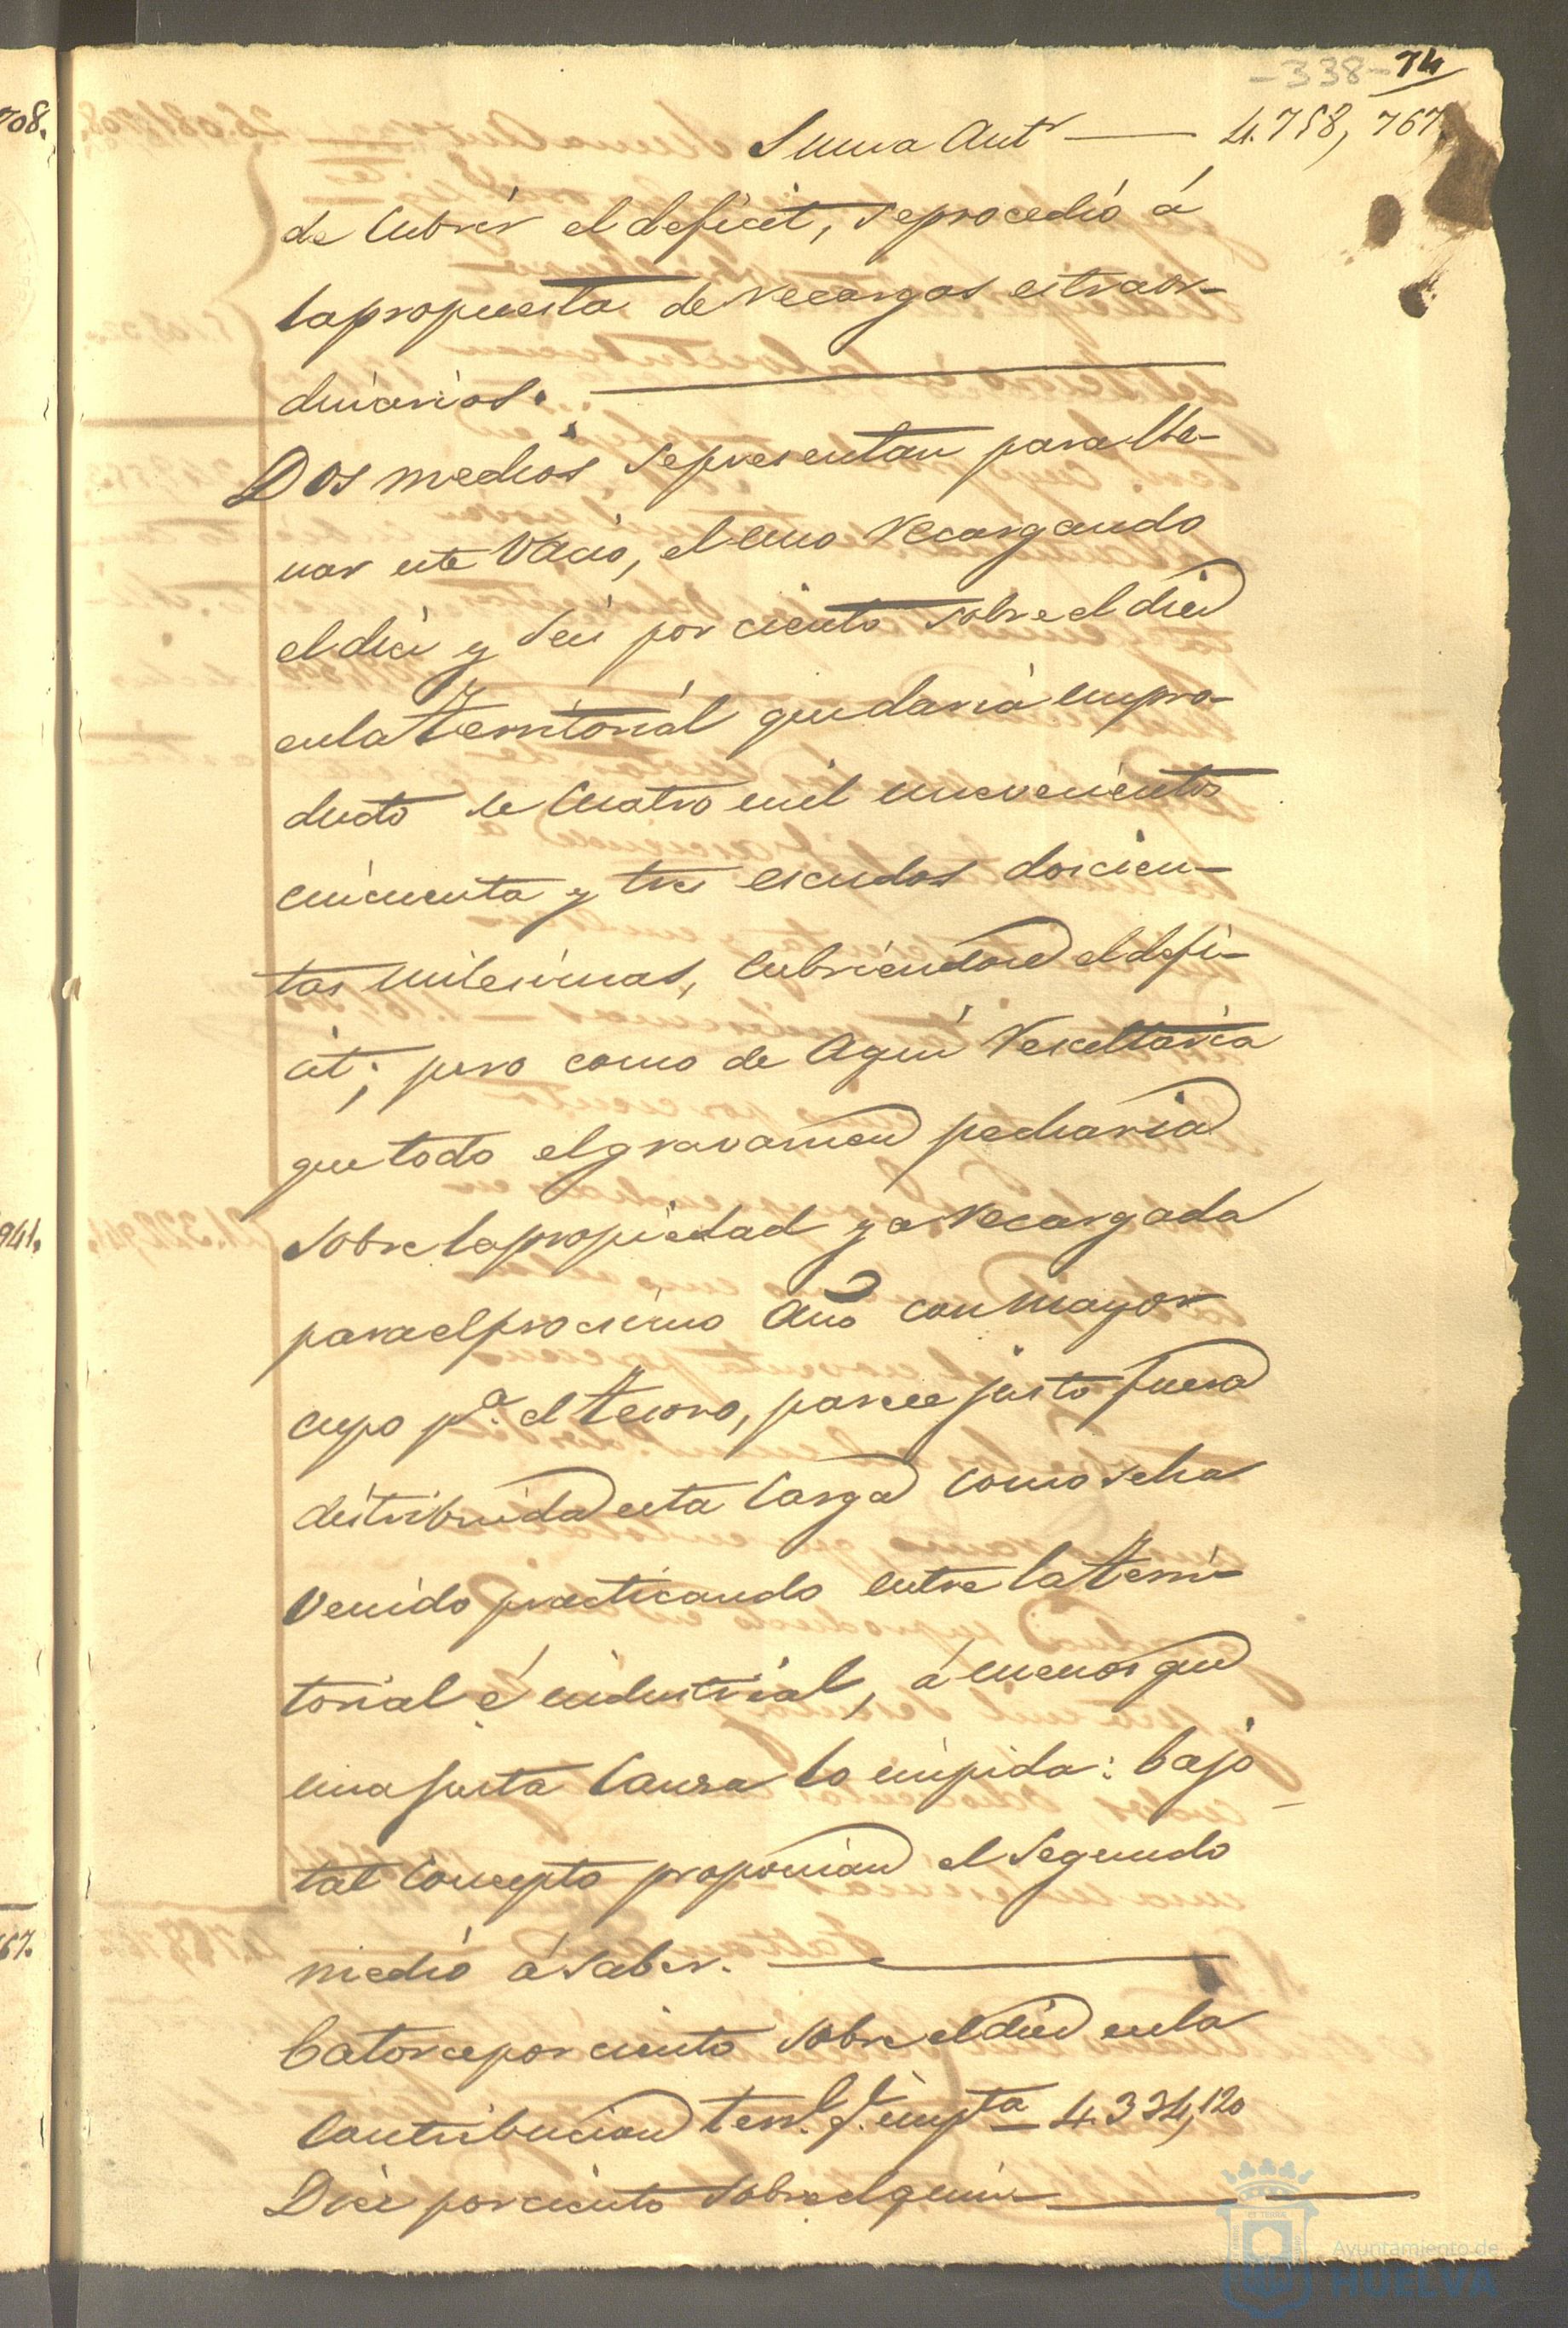 -338- 74
708.
Suma Ant.r — 4.758,767.
de Cubrir el deficit, se procedió á
la propuesta de recargos estraor-
dinarios.
Dos medios se presentan para lle-
nar este Vacio, el uno recargando
el diez y seis por ciento sobre el diez
en la territorial que daria un pro-
ducto de Cuatro mil nuevecientos
cincuenta y tres escudos doscien-
tas milesimas, cubriendose el defi-
cit; pero como de aqui resultaria
que todo el gravamen pecharia
sobre la propiedad ya recargada
941.
para el procsimo año con mayor
cupo p.a el tesoro, parece justo fuera
distribuida esta Carga como se ha
Venido practicando entre la terri-
torial é industrial, á menos que
una justa Causa lo impida: bajo
tal Concepto proponian el Segundo
67.
medio á saber.
Catorce por ciento sobre el diez en la
Contribucion terr.l q.e impta — 4.334,120
Diez por ciento sobre el quin
Ayuntamiento de
HUELVA